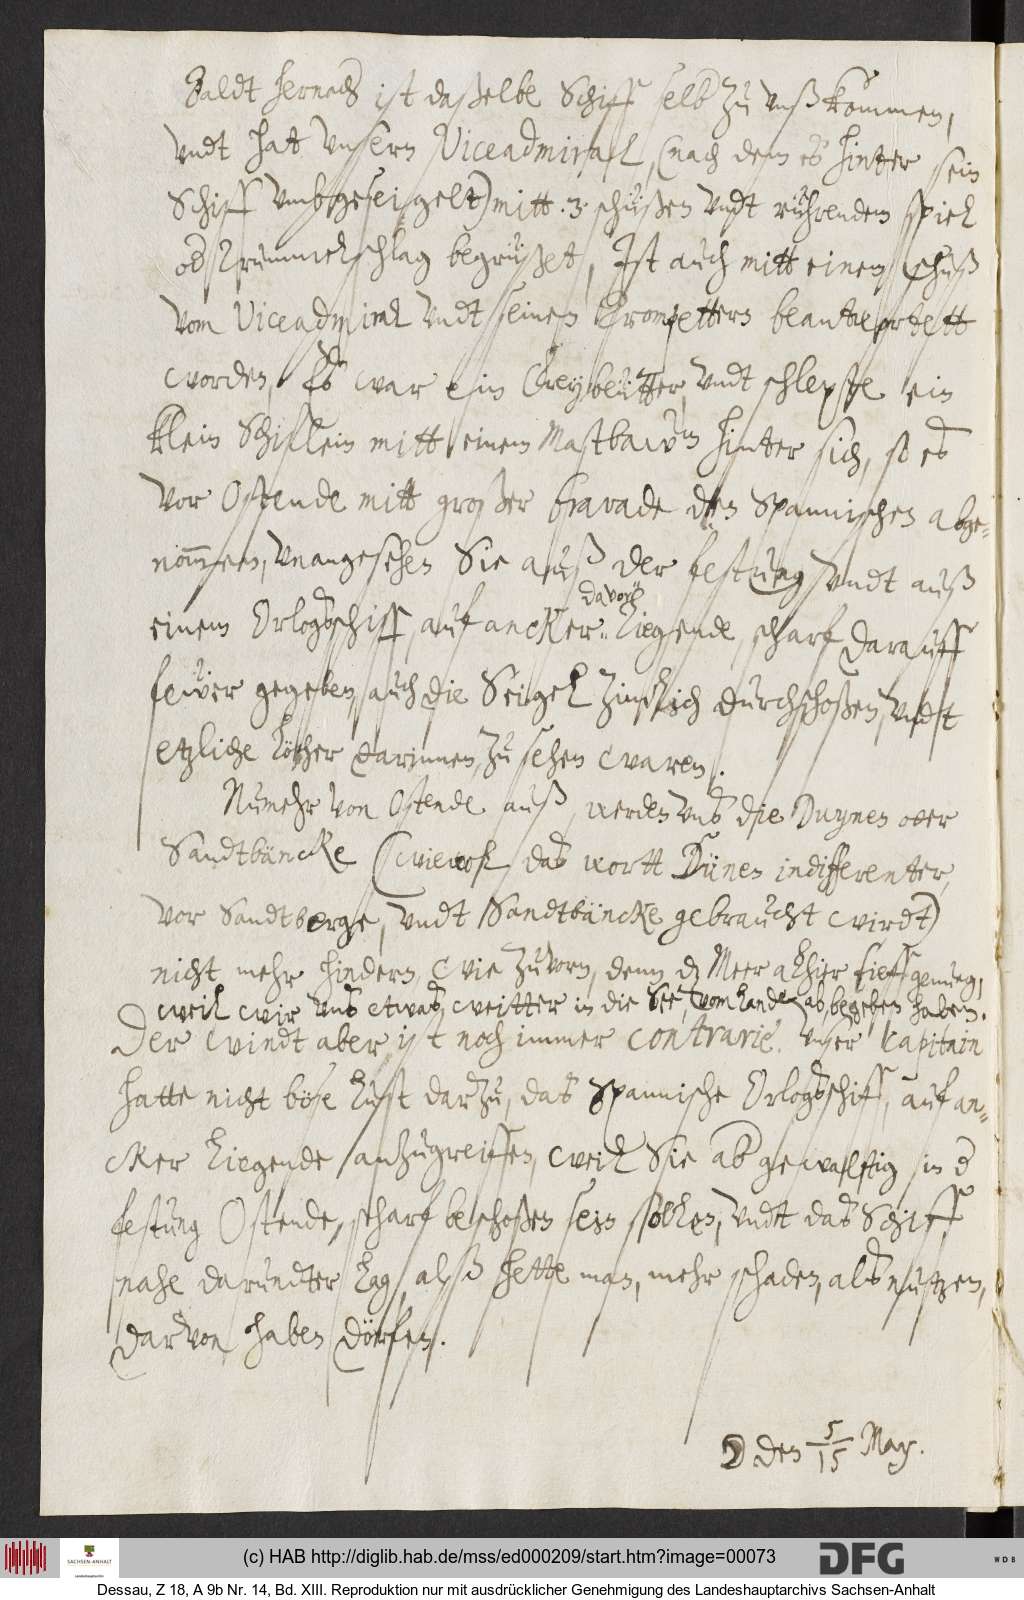 Baldt hernach ist daßelbe Schiff selb zu unß kommen,
undt hat unsern Viceadmiral, (nach dem es hinter sein
Schiff umbgeseigelt) mitt .3. schüßen undt rührendem spiel
od Trummelschlag begrüßet, Ist auch mitt einem schuß
vom Viceadmiral undt seinen Trompettern beantwortett
worden, Es war ein Freybeütter, undt schlepte ein
klein Schiflein mitt einem Mastbawm hinter sich, so es
vor Ostende mitt großer bravade den Spannischen abge-
nommen, unangesehen Sie auß der festung undt auß
einem Orlogschiff, auf ancker davor liegende, scharf darauff
fewer gegeben, auch die Seigel zimlich durchschoßen, undt
etzliche löcher darinnen zu sehen waren.
Numehr von Ostende auß, werden uns die Duynen oder
Sandtbäncke (wiewol das wortt Dünen indifferenter,
vor Sandtberge, undt Sandtbäncke gebraucht wirdt)
nicht mehr hindern, wie zuvorn, denn dz Meer alhier tieff genueg,
weil wir uns etwas weitter in die See, vom Lande ab, begeben haben.
Der windt aber ist noch immer contrarie. Unser Capitain
hatte nicht böse lust darzu, das Spannische Orlogschiff, auf an-
cker liegende anzugreiffen, weil Sie ab gewaltig in d
festung Ostende, scharf beschoßen sein sollen, undt das Schiff
nahe darundter lag, alß hette man, mehr schaden, als nutzen,
darvon haben dörfen.
☽ den 5/15 May.
(c) HAB http://diglib.hab.de/mss/ed000209/start.htm?image=00073
SACHSEN-ANHALT
DFG
WDB
Dessau, Z 18, A 9b Nr. 14, Bd. XIII. Reproduktion nur mit ausdrücklicher Genehmigung des Landeshauptarchivs Sachsen-Anhalt